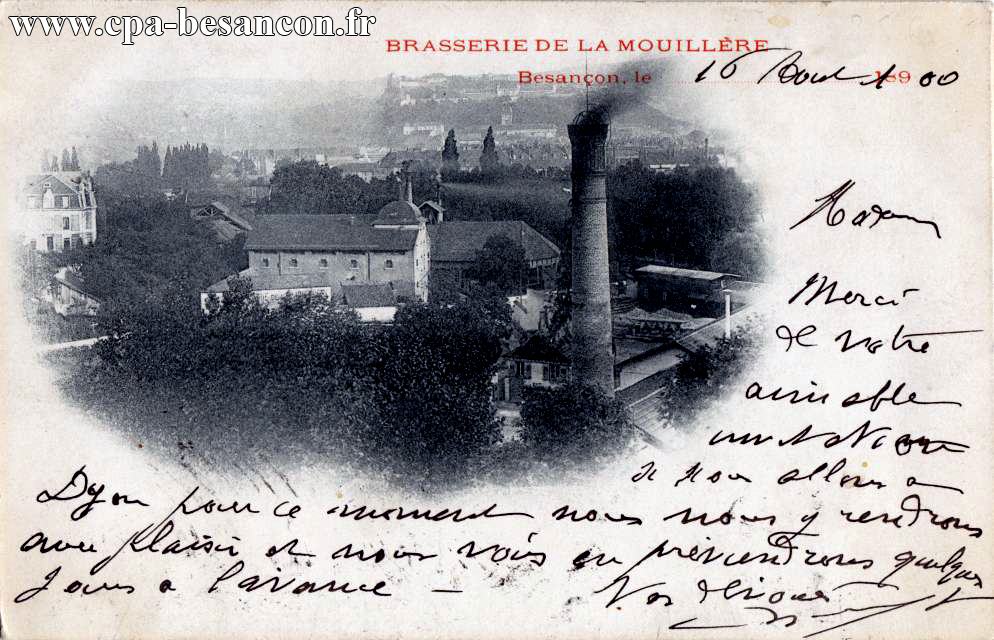 www.cpa-besancon.fr
BRASSERIE DE LA MOUILLÈRE
Besançon, le 16 Aout 1900
189
Madame
Merci
de votre
aimable
invitation
si nous allons a
Dijon pour ce moment nous nous y rendrons
avec plaisir et nous vous en préviendrons quelques
Jours a l'avance –
Vos dévoués